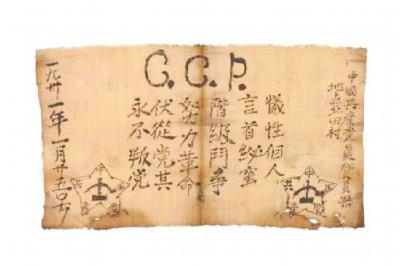 C.C.P.
中國共產黨員
地点北田村
犧牲個人
言首秘蜜
階級鬥争
努力革命
伏從党其
永不叛党
一九卅一年一月廿五